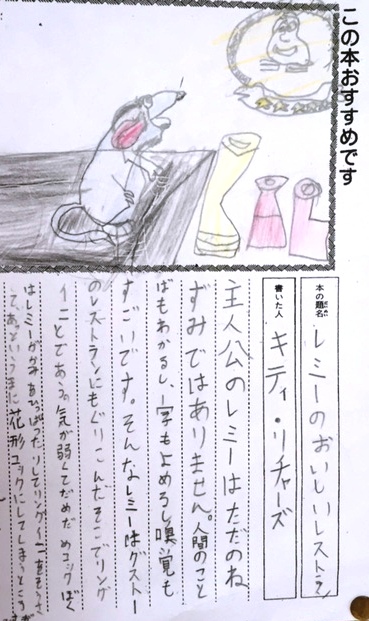 この本おすすめです
本の題名
レミーのおいしいレストラン
書いた人
キティ・リチャーズ
主人公のレミーはただのね
ずみではありません。人間のこと
ばもわかるし、字もよめるし嗅覚も
すごいです。そんなレミーはグストー
のレストランにもぐりこんだそこでリング
イニとであう。気が弱くてだめだめコックばく
はレミーがかみをひっぱったりしてリングイニをそうさ
て、あっというまに花形コックにしてしまうところ